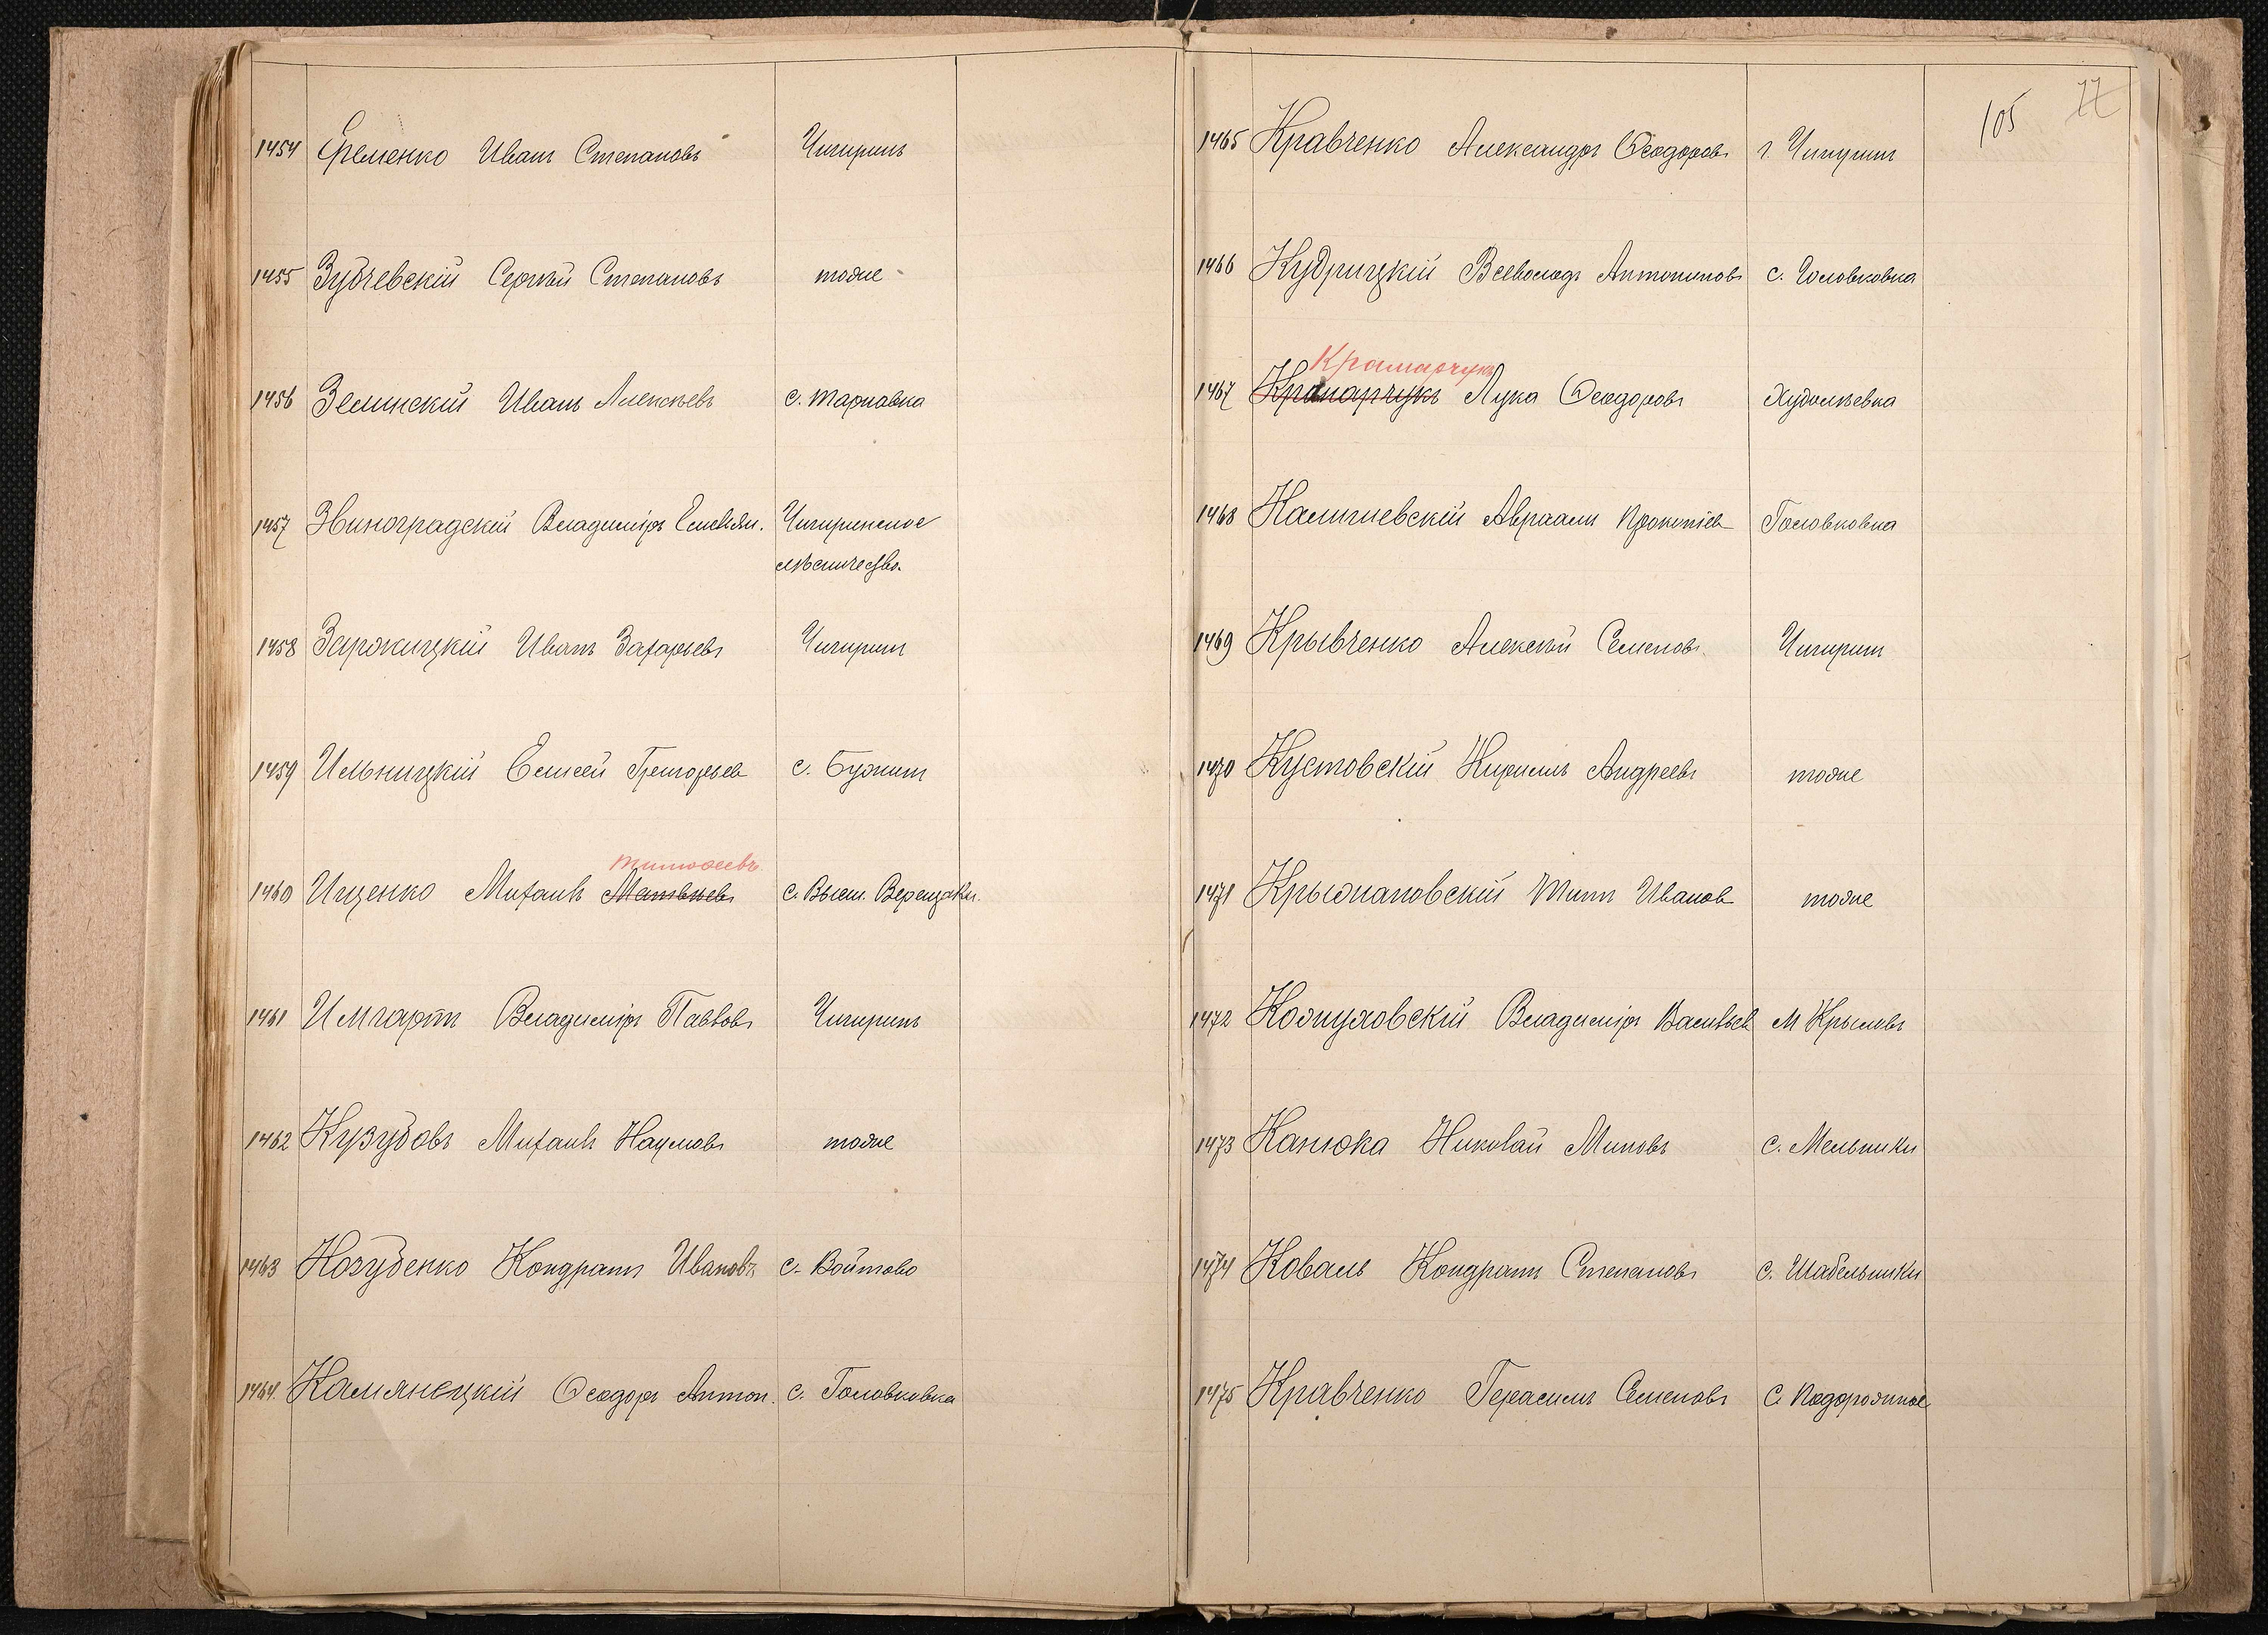 1454 Еременко Иванъ Степановъ Чигиринъ
1455 Зубчевскій Сергѣй Степановъ тоже
1456 Зелинскій Иванъ Алексѣевъ с. Тарнавка
1457 Звиноградскій Владиміръ Емельян. Чигиринское
лѣсничество.
1458 Зарожицкій Иванъ Захарьевъ Чигиринъ
1459 Ильницкій Елисей Григорьев с. Бужинъ
тимофеевъ
1460 Ищенко Михаилъ Матвѣевъ с. Высш. Верещаки.
1461 Имгартъ Владиміръ Павловъ Чигиринъ
1462 Кузубовъ Михаилъ Наумовъ тоже
1463 Козубенко Кондратъ Ивановъ с. Войтово
1464. Камянецкій Ѳеодоръ Антон. с. Головковка
105 77
1465 Кравченко Александръ Ѳеодоровъ г. Чигиринъ
1466 Кудрицкій Всеволодъ Антониновъ с. Головковка
Крамарчукъ
1467 Лука Ѳеодоровъ Худолѣевка
1468 Калишевскій Авраамъ Прокопіев Головковка
1469 Крывченко Алексѣй Семеновъ Чигиринъ
1470 Кустовскій Кириллъ Андреевъ тоже
1471 Крыжановскій Титъ Иванов тоже
1472 Владиміръ Васильев М Крыловъ
1473 Канюка Николай Миновъ с. Мельники
1474 Коваль Кондратъ Степановъ с. Шабельники
1475 Кравченко Герасимъ Семеновъ С. Подорожное